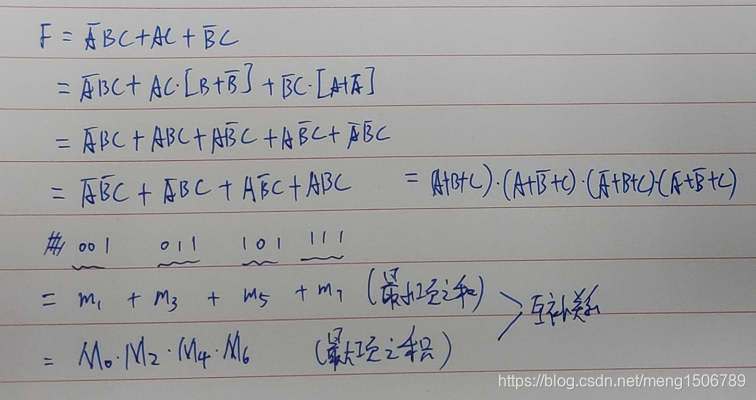 F = A̅BC + AC + B̅C
= A̅BC + AC·[B+B̅] + B̅C·[A+A̅]
= A̅BC + ABC + AB̅C + AB̅C + A̅B̅C
= A̅B̅C + A̅BC + AB̅C + ABC = (A+B+C)·(A+B̅+C)·(A̅+B+C)·(A̅+B̅+C)
001 011 101 111
= m₁ + m₃ + m₅ + m₇ (最小项之和)
= M₀·M₂·M₄·M₆ (最大项之积)
互补关系
https://blog.csdn.net/meng1506789